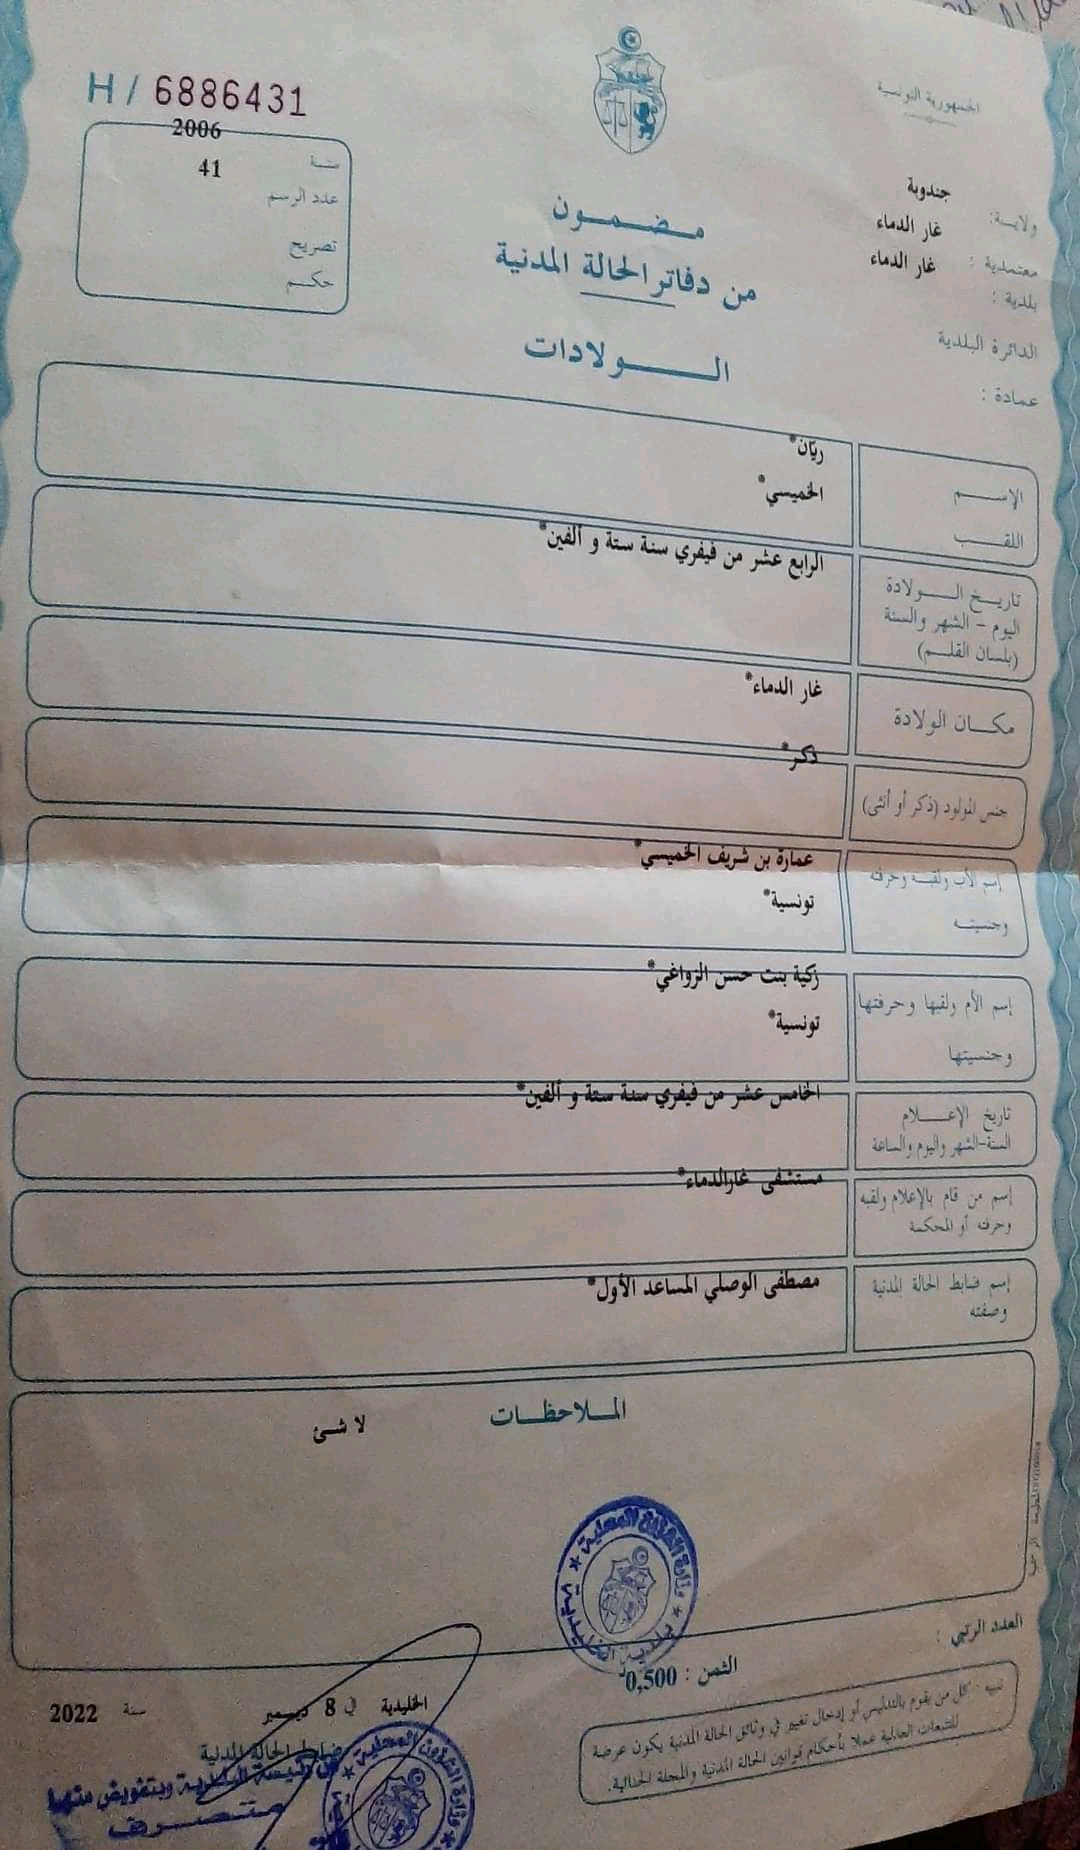 الجمهورية التونسية
H / 6886431
سنة 2006
عدد الرسم 41
تصريح
حكم
ولاية: جندوبة
معتمدية : غار الدماء
بلدية : غار الدماء
الدائرة البلدية
عمادة :
مضمون
من دفاتر الحالة المدنية
الولادات
الإسم ريّان*
اللقب الخميسي*
تاريخ الولادة
اليوم - الشهر والسنة
(بلسان القلم)
الرابع عشر من فيفري سنة ستة و ألفين*
مكان الولادة غار الدماء*
جنس المولود (ذكر أو أنثى) ذكر*
إسم الأب ولقبه وحرفته
وجنسيته
عمارة بن شريف الخميسي*
تونسية*
إسم الأم ولقبها وحرفتها
وجنسيتها
زكية بنت حسن الزواغي*
تونسية*
تاريخ الإعلام
السنة-الشهر واليوم والساعة
الخامس عشر من فيفري سنة ستة و ألفين*
إسم من قام بالإعلام ولقبه
وحرفته أو المحكمة
مستشفى غارالدماء*
إسم ضابط الحالة المدنية
وصفته
مصطفى الوصلي المساعد الأول*
الملاحظات
لا شئ
وزارة الشؤون المحلية
بلدية الخليدية
العدد الرتبي :
الثمن : 0,500
تنبيه : كل من يقوم بالتدليس أو إدخال تغيير في وثائق الحالة المدنية يكون عرضة
للتتبعات العدلية عملا بأحكام قوانين الحالة المدنية والمجلة الجنائية.
الخليدية في 8 ديسمبر سنة 2022
ضابط الحالة المدنية
عن رئيسة البلدية وبتفويض منها
متصرف
وزارة الشؤون المحلية